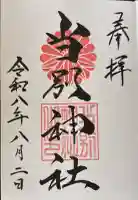 奉拝
当別神社
令和八年八月二日